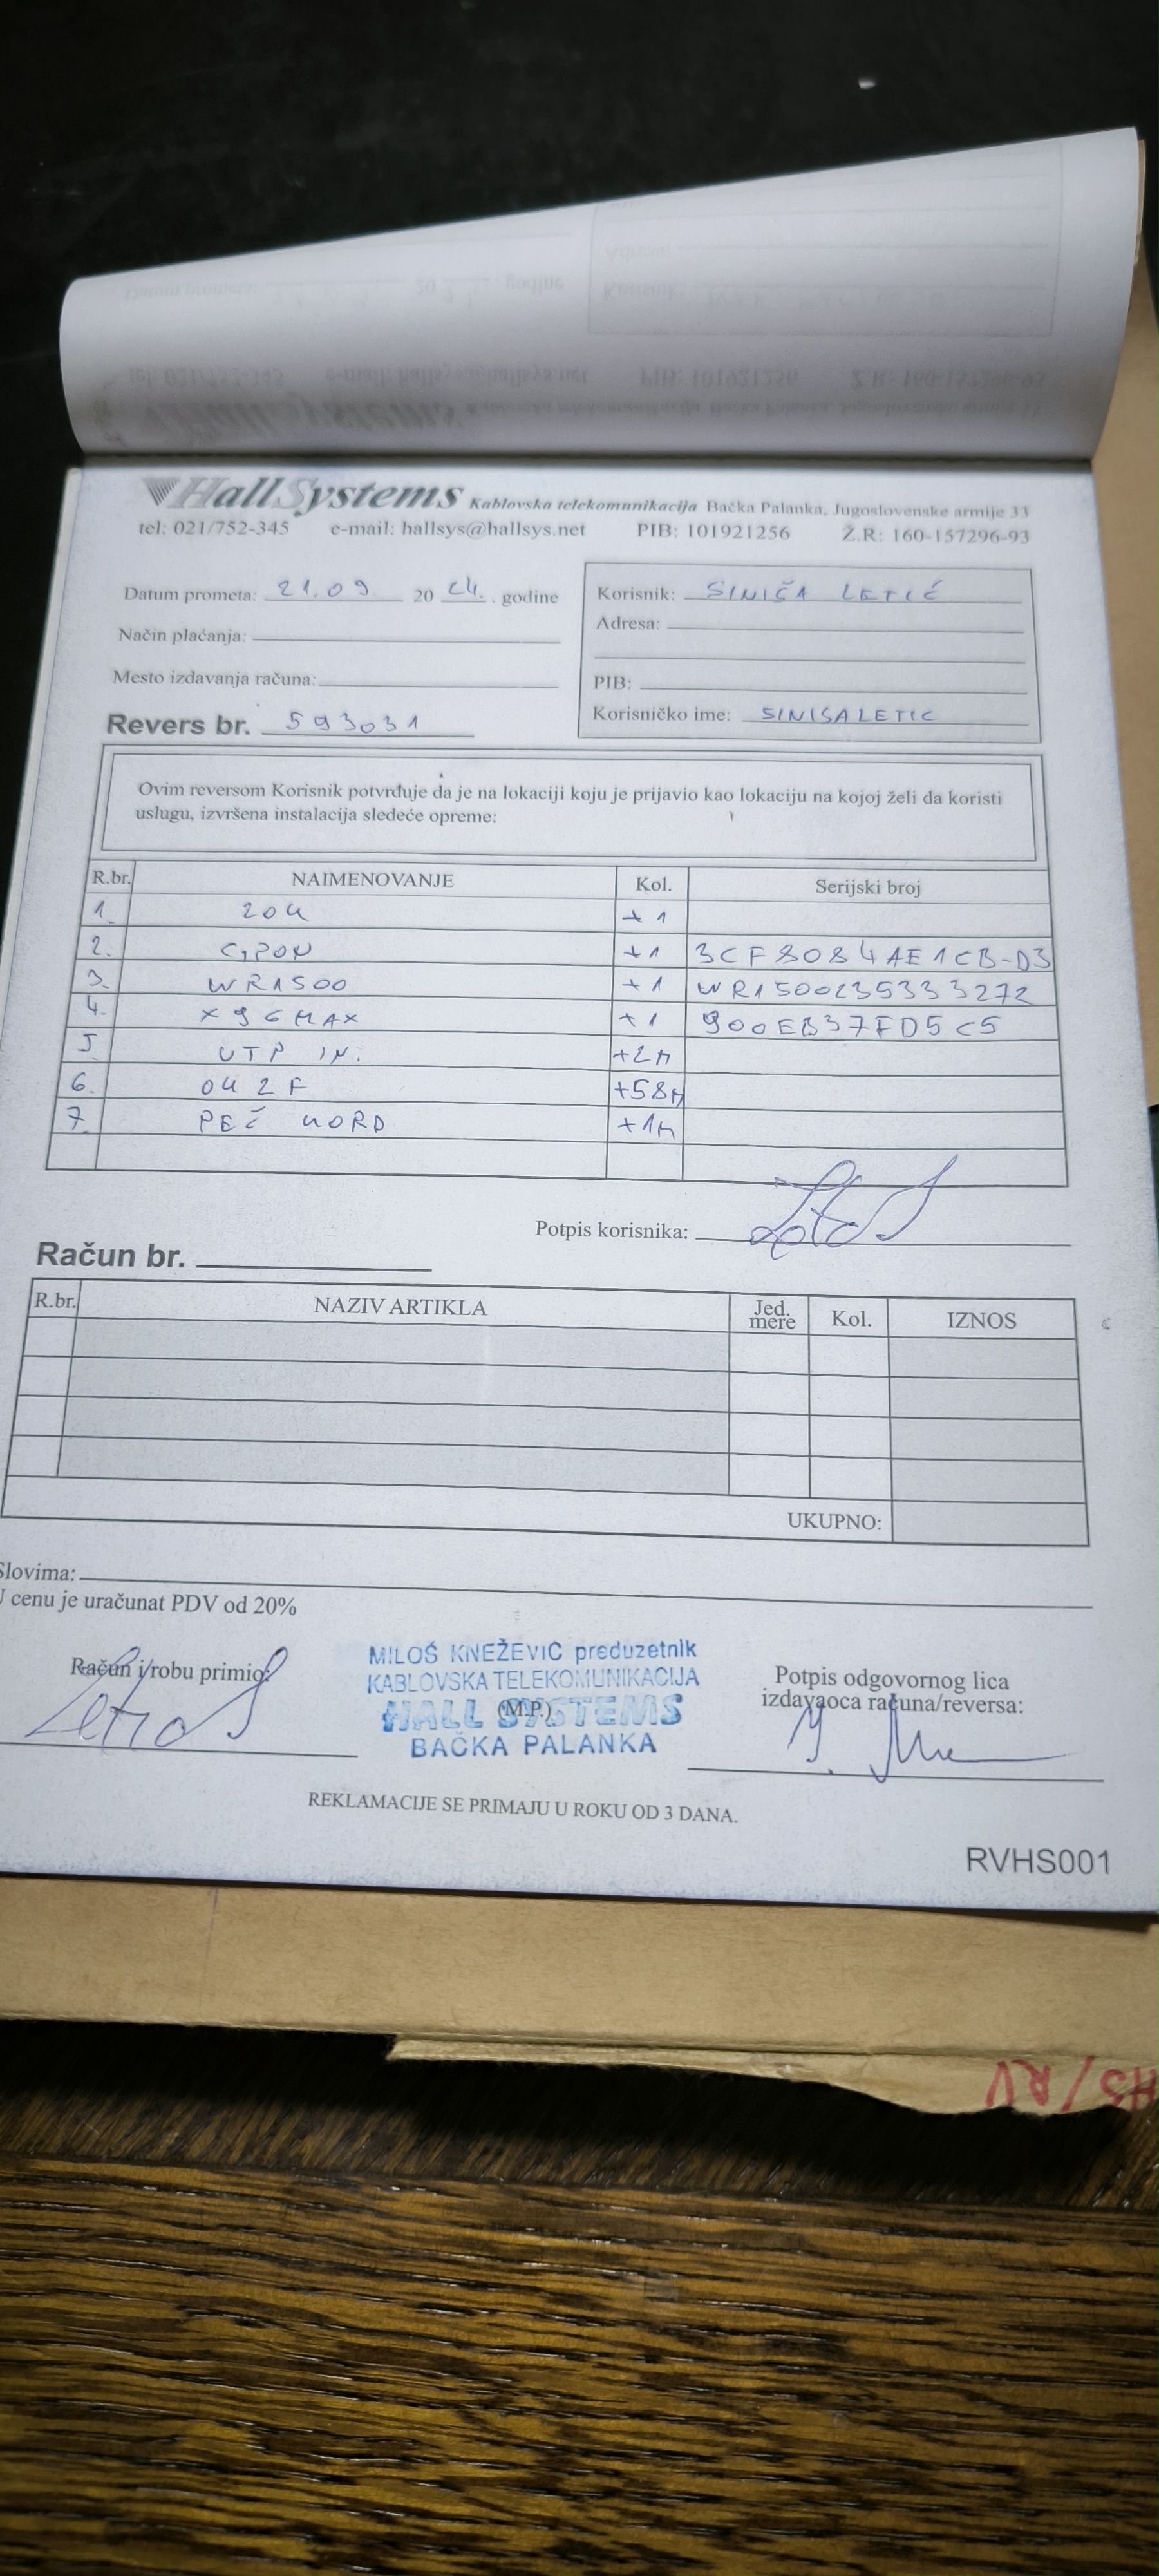 HallSystems Kablovska telekomunikacija Bačka Palanka, Jugoslovenske armije 33
tel: 021/752-345 e-mail: hallsys@hallsys.net PIB: 101921256 Ž.R: 160-157296-93
Datum prometa: 21.09. 20 24. . godine
Način plaćanja:
Mesto izdavanja računa:
Revers br. 593031
Korisnik: SINIŠA LETIĆ
Adresa:
PIB:
Korisničko ime: SINISALETIC
Ovim reversom Korisnik potvrđuje da je na lokaciji koju je prijavio kao lokaciju na kojoj želi da koristi
uslugu, izvršena instalacija sledeće opreme:
R.br. NAIMENOVANJE Kol. Serijski broj
1. ZOK +1
2. GPON +1 3CF8084AE1CB-D3
3. WR1500 +1 WR1500235333272
4. X96MAX +1 900EB37FD5C5
5. UTP IN. +2M
6. OK 2F +58M
7. PEČ KORD +1M
Potpis korisnika:
Račun br.
R.br. NAZIV ARTIKLA Jed. mere Kol. IZNOS
UKUPNO:
Slovima:
U cenu je uračunat PDV od 20%
Račun i robu primio:
MILOŠ KNEŽEVIĆ preduzetnik
KABLOVSKA TELEKOMUNIKACIJA
HALL SYSTEMS
(M.P.)
BAČKA PALANKA
Potpis odgovornog lica
izdavaoca računa/reversa:
REKLAMACIJE SE PRIMAJU U ROKU OD 3 DANA.
RVHS001
HS/RV